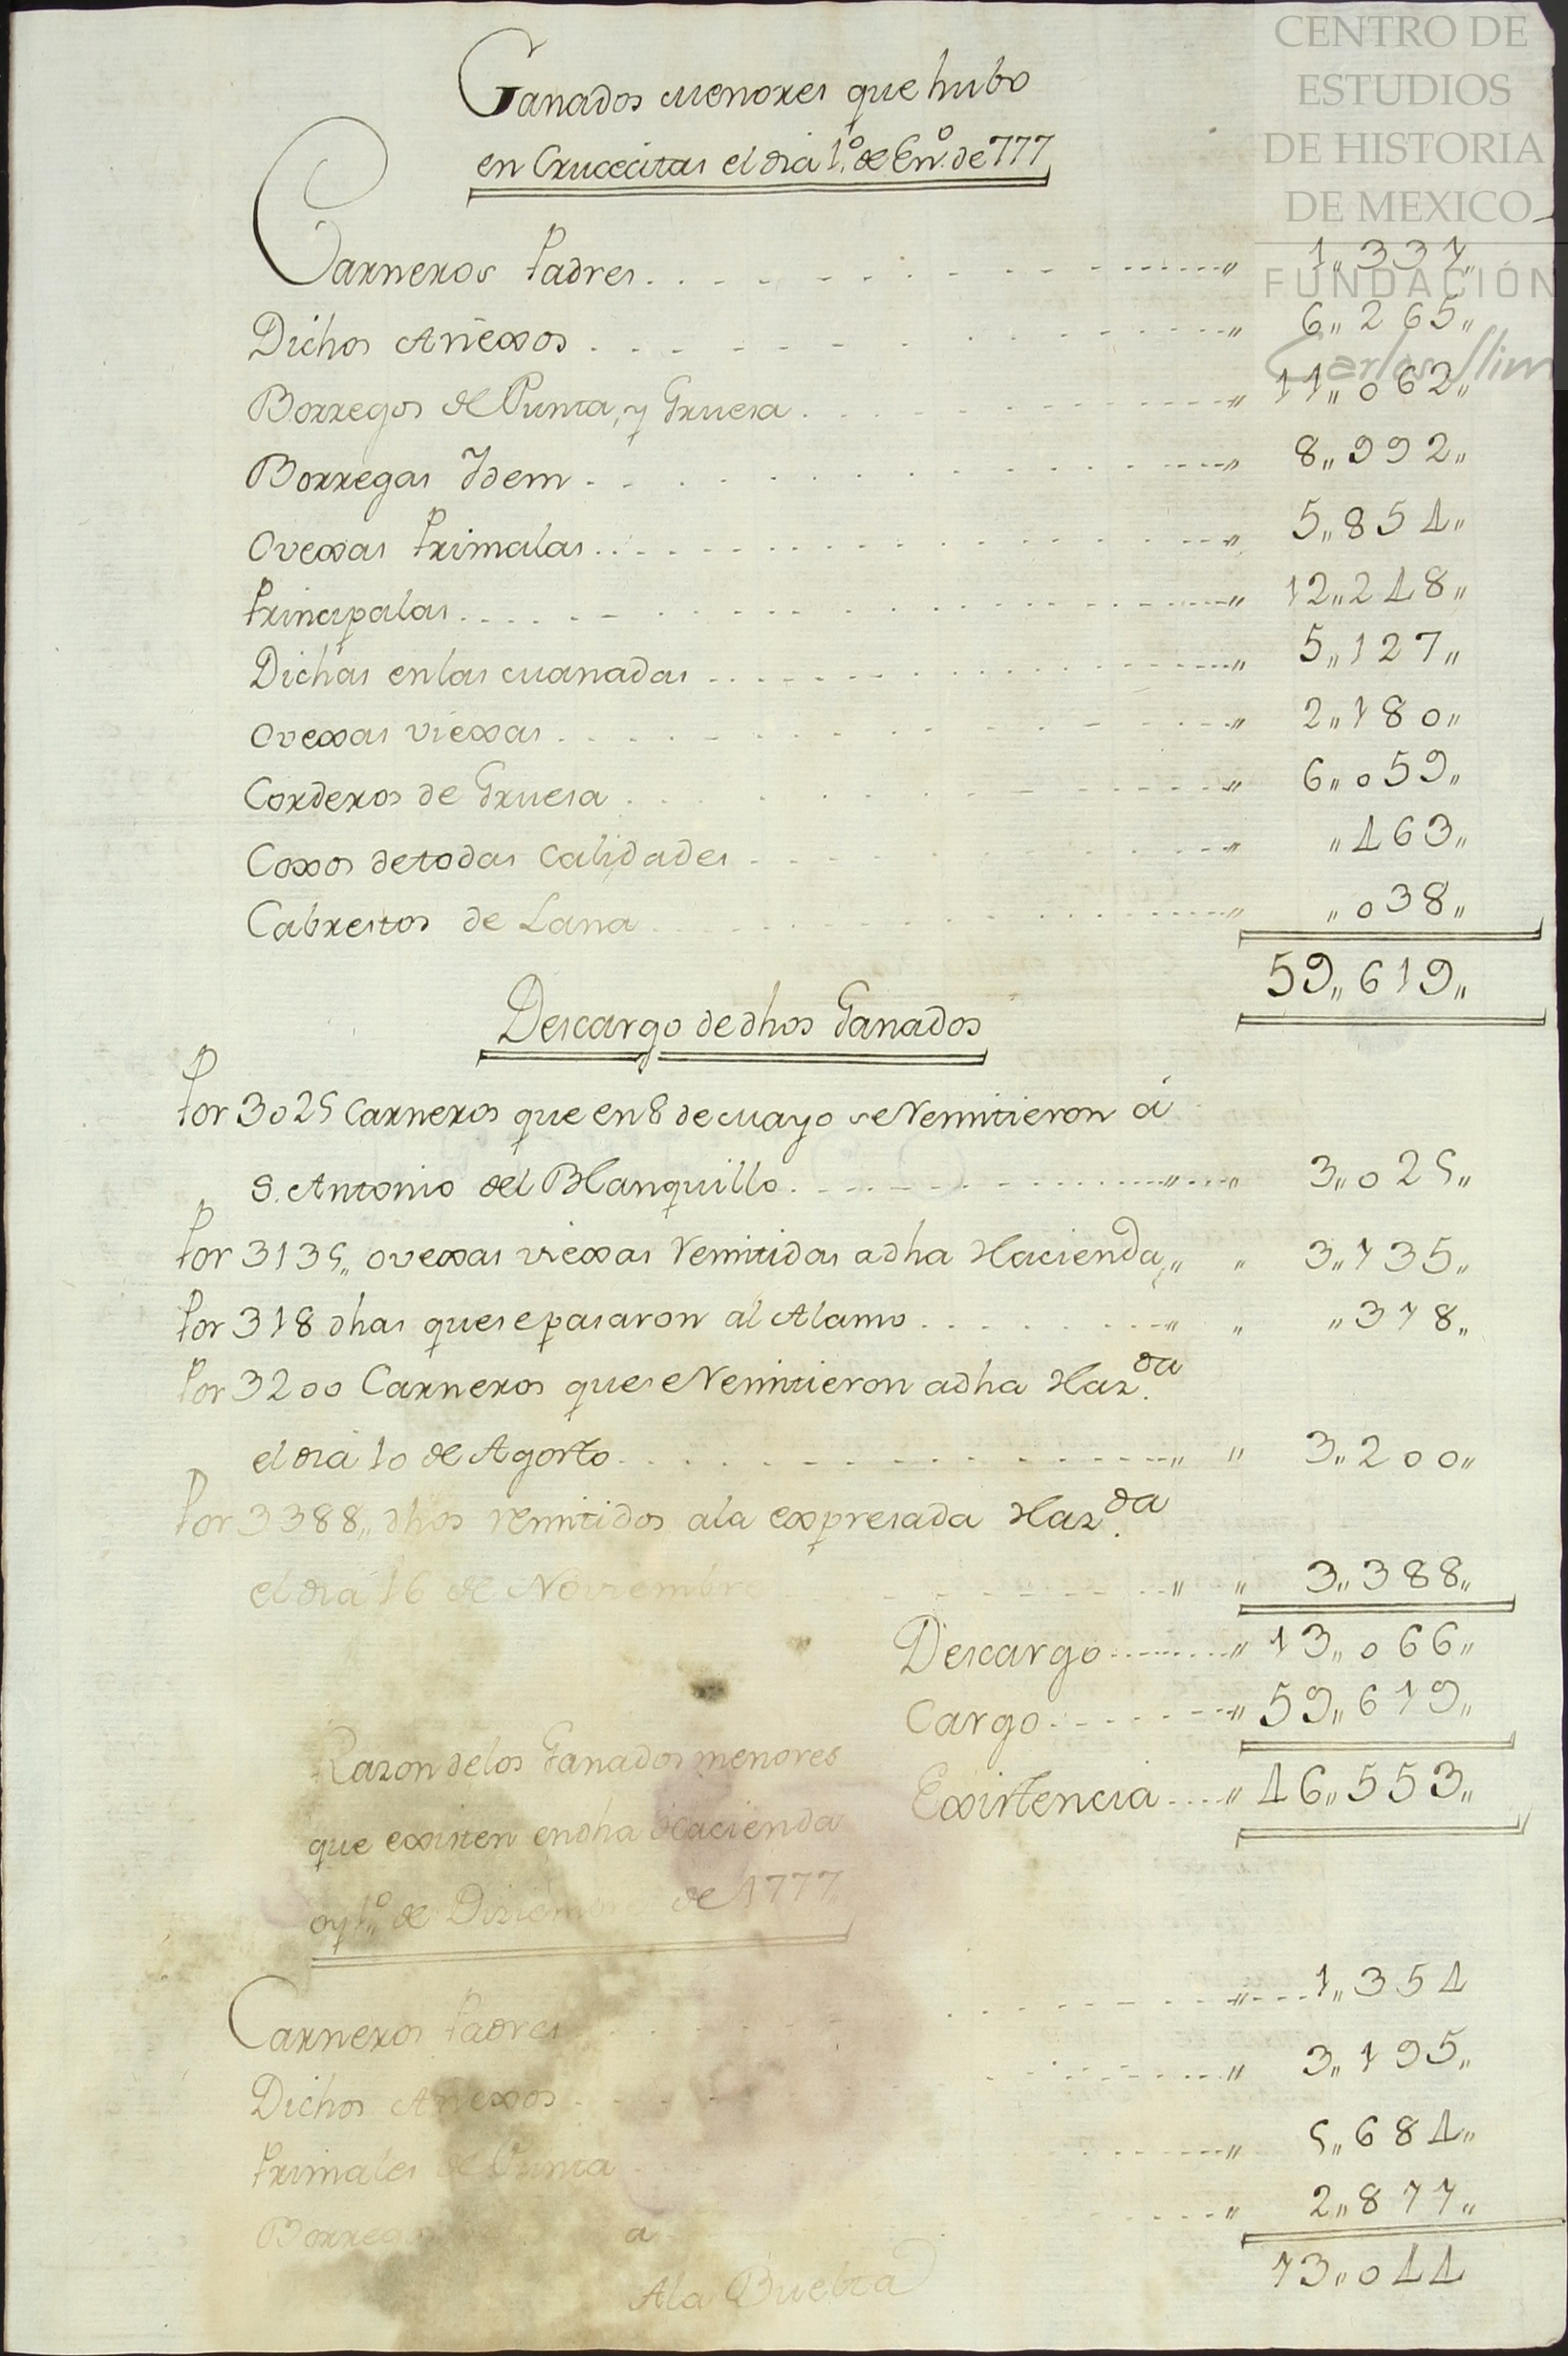 CENTRO DE
ESTUDIOS
DE HISTORIA
DE MEXICO
FUNDACIÓN
Carlos Slim
Ganados menores que hubo
en Crucecitas el dia 1.º de En.º de 777
Carneros Padres 1,,331,,
Dichos Añexos 6,,265,,
Borregos de Punta, y Gruesa 11,,062,,
Borregas Idem 8,,992,,
Ovexas Primalas 5,,854,,
Principalas 12,,248,,
Dichas enlas manadas 5,,127,,
Ovexas viexas 2,,180,,
Corderos de Gruesa 6,,059,,
Coxos detodas Calidades ,,463,,
Cabrestos de Lana ,,038,,
59,,619,,
Descargo de dhos Ganados
Por 3025 Carneros que en 8 de mayo se Remitieron á
S. Antonio del Blanquillo 3,,025,,
Por 3135,, ovexas viexas Remitidas adha Hacienda,, 3,,135,,
Por 318 dhas quesepasaron al Alamo ,,318,,
Por 3200 Carneros quese Remitieron adha Haz.da
el dia 10 de Agosto 3,,200,,
Por 3388,, dhos remitidos ala expresada Haz.da
el dia 16 de Noviembre 3,,388,,
Descargo 13,,066,,
Cargo 59,,619,,
Existencia 46,,553,,
Razon delos Ganados menores
que existen endha Hacienda
oy 1.º de Diziembre de 1777
Carneros Padres 1,,354
Dichos Añexos 3,,195,,
Primales de Punta 5,,684,,
Borregos 2,,811,,
13,,044
Ala Buelta